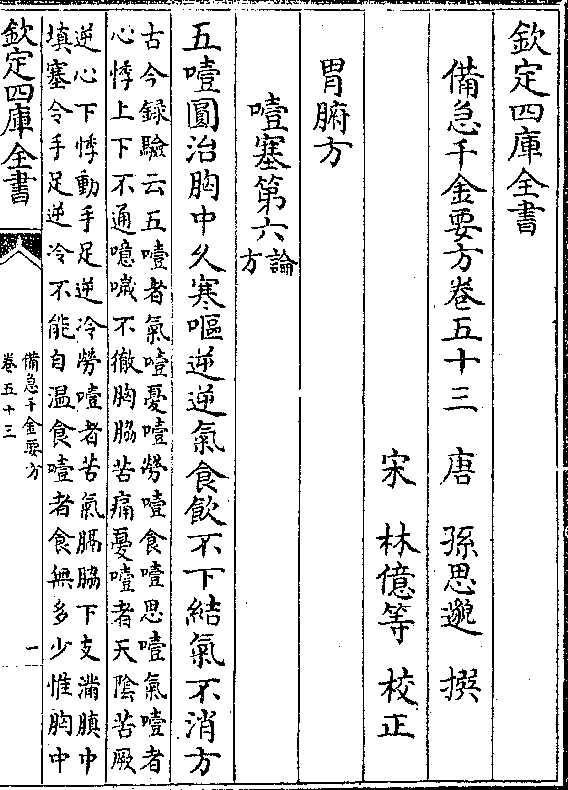 欽定四庫全書
備急千金要方卷五十三 唐 孫思邈 撰
宋 林億等 校正
胃腑方
噎塞第六論方
五噎圓治胸中久寒嘔逆逆氣食飲不下結氣不消方
古今録驗云五噎者氣噎憂噎勞噎食噎思噎氣噎者
心悸上下不通噫噦不徹胸脇苦痛憂噎者天陰苦厥
逆心下悸動手足逆冷勞噎者苦氣膈脇下支滿胸中
填塞令手足逆冷不能自温食噎者食無多少惟胸中
欽定四庫全書
備急千金要方
卷五十三
一